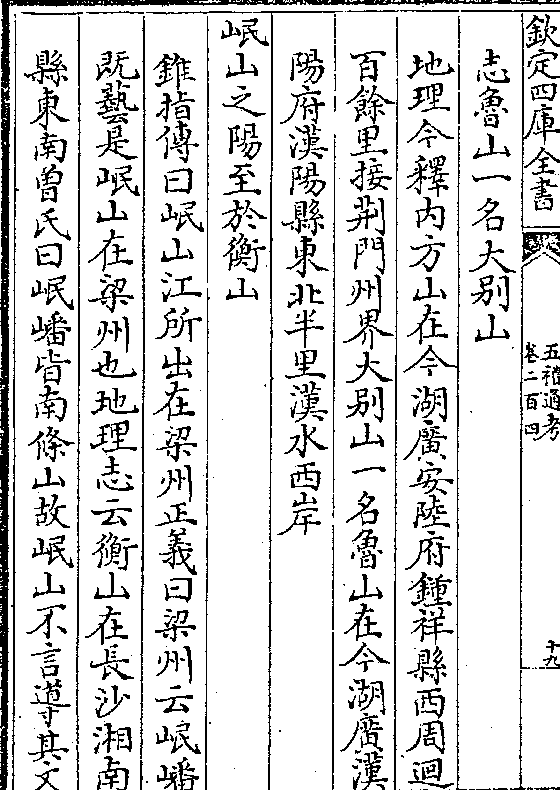 欽定四庫全書
五禮通考
卷二百四
十九
志魯山一名大别山
地理今釋内方山在今湖廣安陸府鍾祥縣西周迴
百餘里接荆門州界大别山一名魯山在今湖廣漢
陽府漢陽縣東北半里漢水西岸
岷山之陽至於衡山
錐指傳曰岷山江所出在梁州正義曰梁州云岷嶓
既藝是岷山在梁州也地理志云衡山在長沙湘南
縣東南曾氏曰岷嶓皆南條山故岷山不言導其文